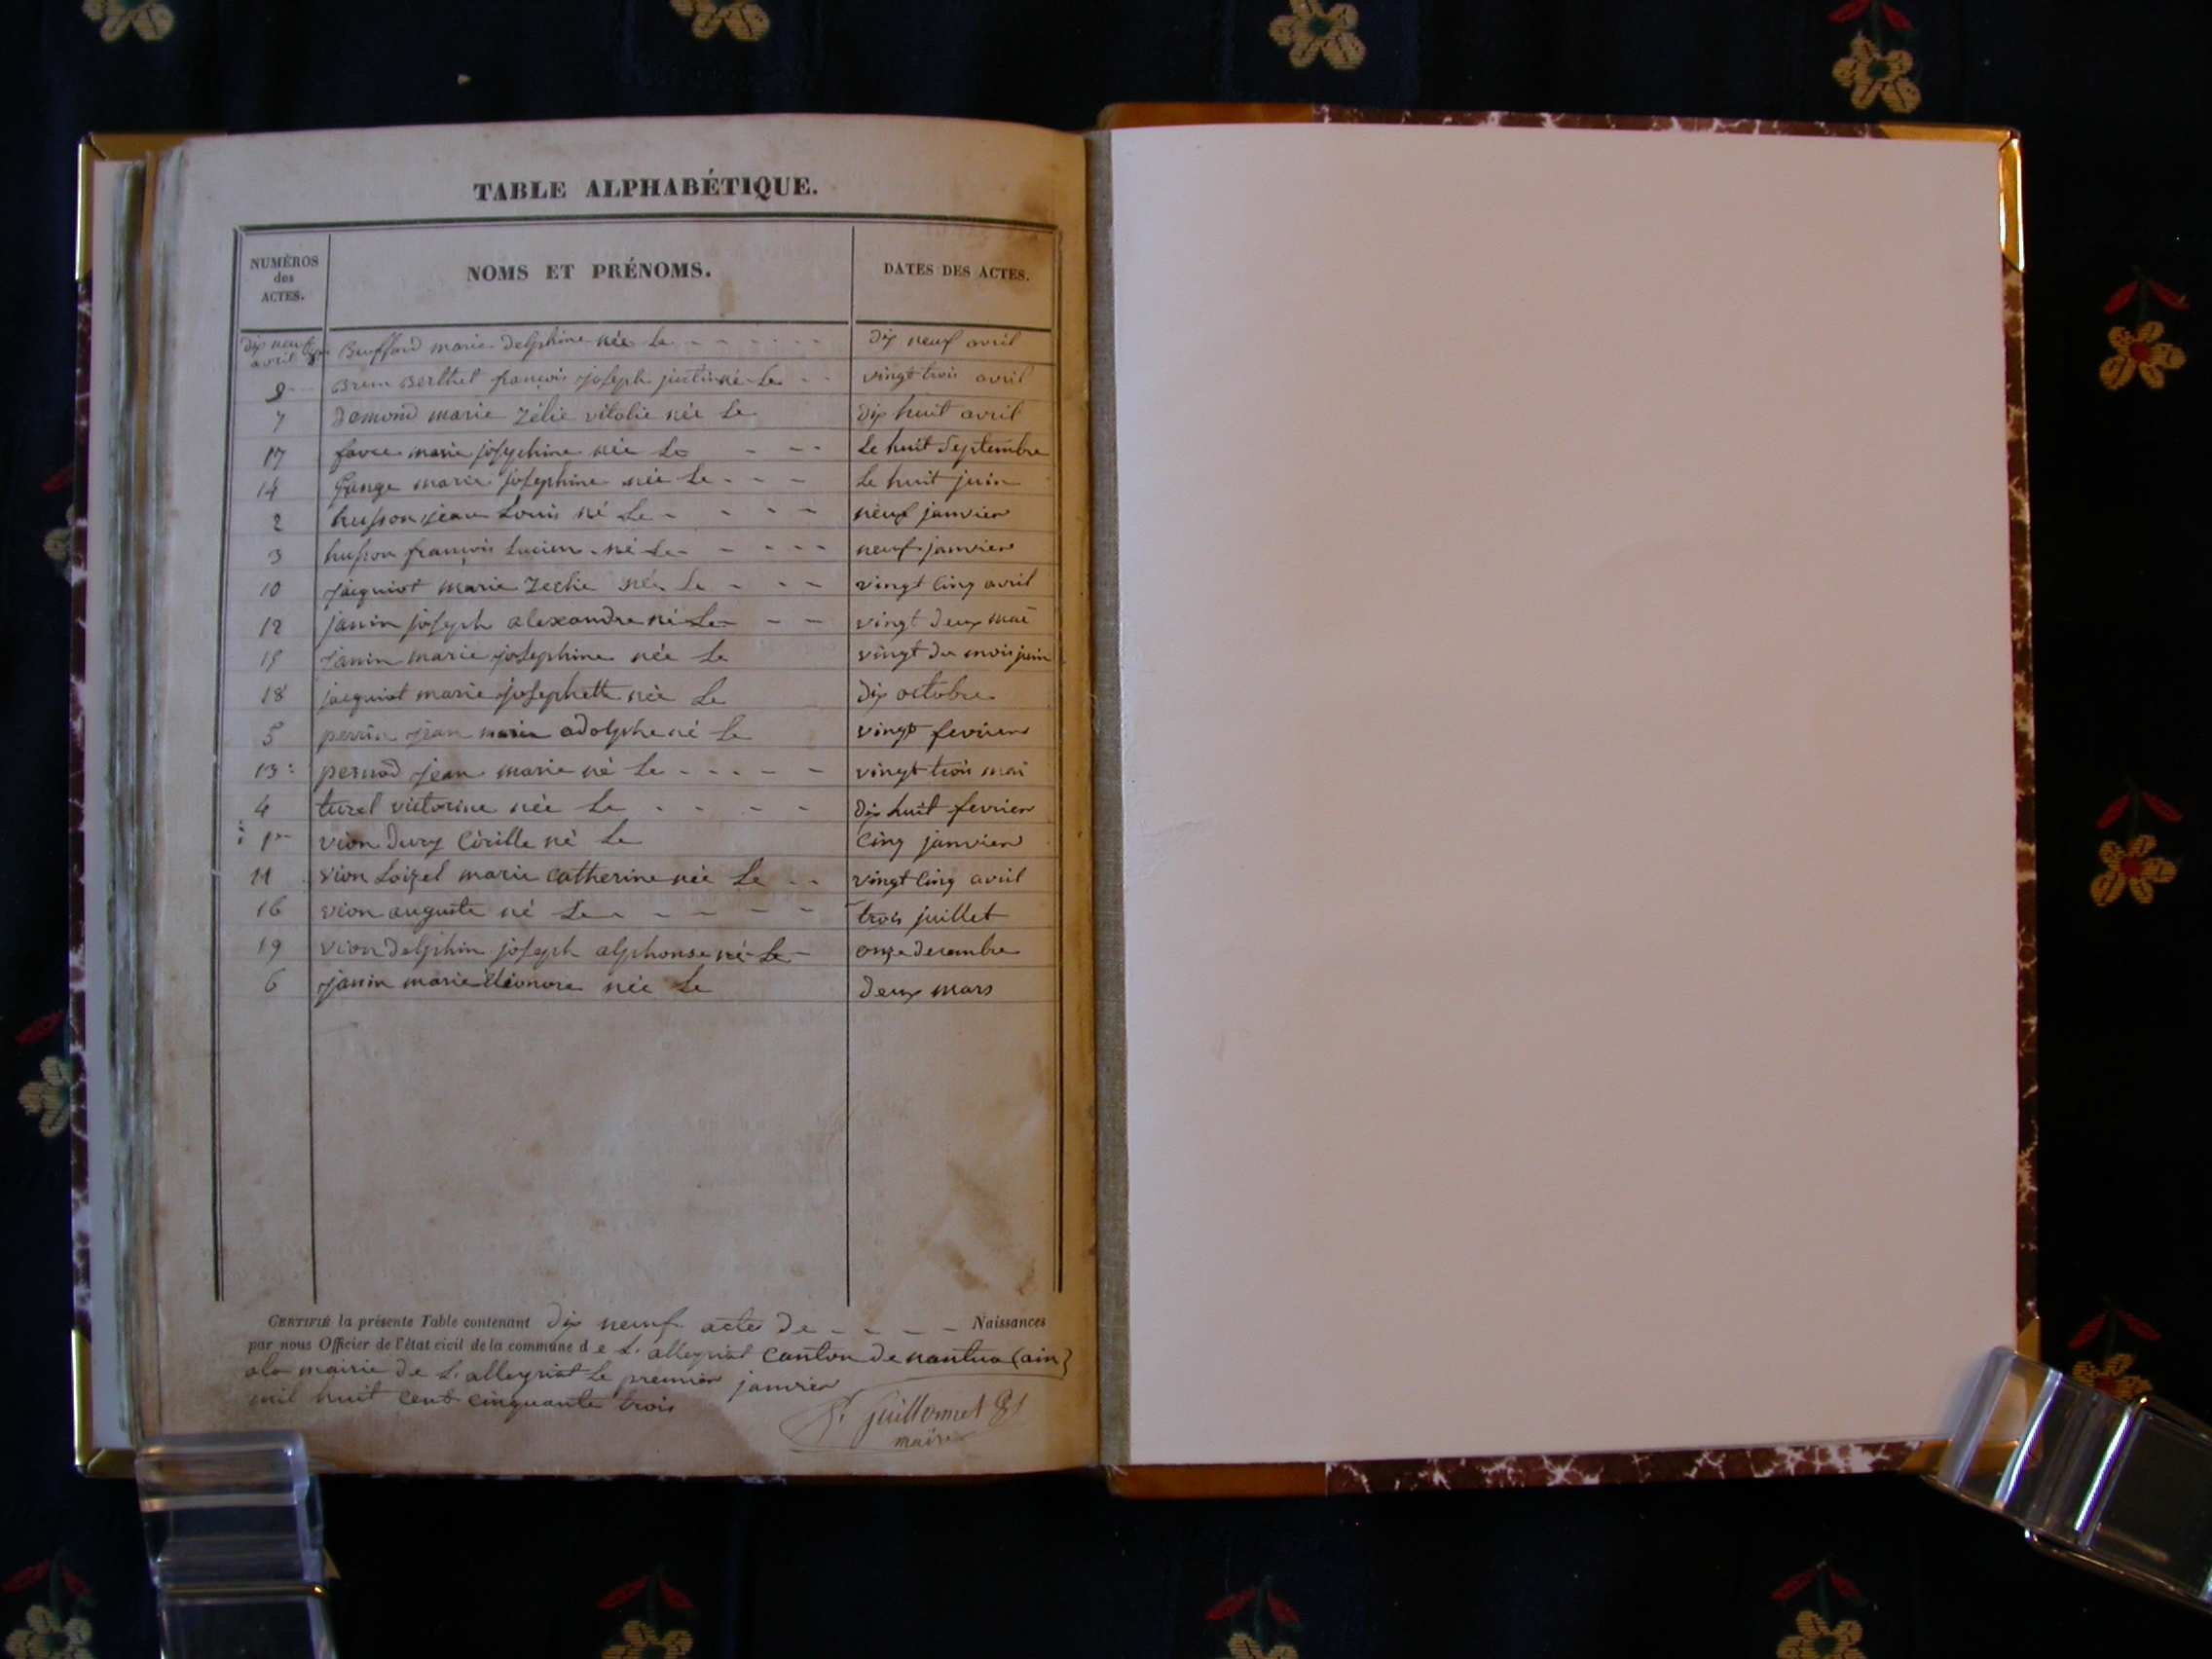 TABLE ALPHABÉTIQUE.
NUMÉROS des ACTES. NOMS ET PRÉNOMS. DATES DES ACTES.
dix neuf avril 8 Buffard marie Delphine née Le dix neuf avril
9 Brun Berthet françois joseph justin né Le vingt trois avril
7 Damond marie Zélie vitalie née Le dix huit avril
17 favre marie josephine née Le Le huit Septembre
14 Gange marie josephine née Le Le huit juin
2 husson jean Louis né Le neuf janvier
3 husson françois Lucien né Le neuf janvier
10 jacquiot marie Zeelie née Le vingt cinq avril
12 janin joseph alexandre né Le vingt deux mai
15 janin marie josephine née Le vingt du mois juin
18 jacquiot marie josephette née Le dix octobre
5 perrin jean marie adolphe né Le vingt fevrier
13 pernod jean marie né Le vingt trois mai
4 turel victorine née Le dix huit fevrier
1er vion Dury Cirille né Le Cinq janvier
11 vion Loizel marie Catherine née Le vingt cinq avril
16 vion auguste né Le trois juillet
19 vion Delphin joseph alphonse né Le onze decembre
6 janin marie éléonore née Le Deux mars
CERTIFIÉ la présente Table contenant dix neuf actes De Naissances
par nous Officier de l'état civil de la commune de L. alleyriat canton De nantua (ain)
ala mairie de L. alleyriat Le premier janvier
mil huit cent cinquante trois
guillermet
maire